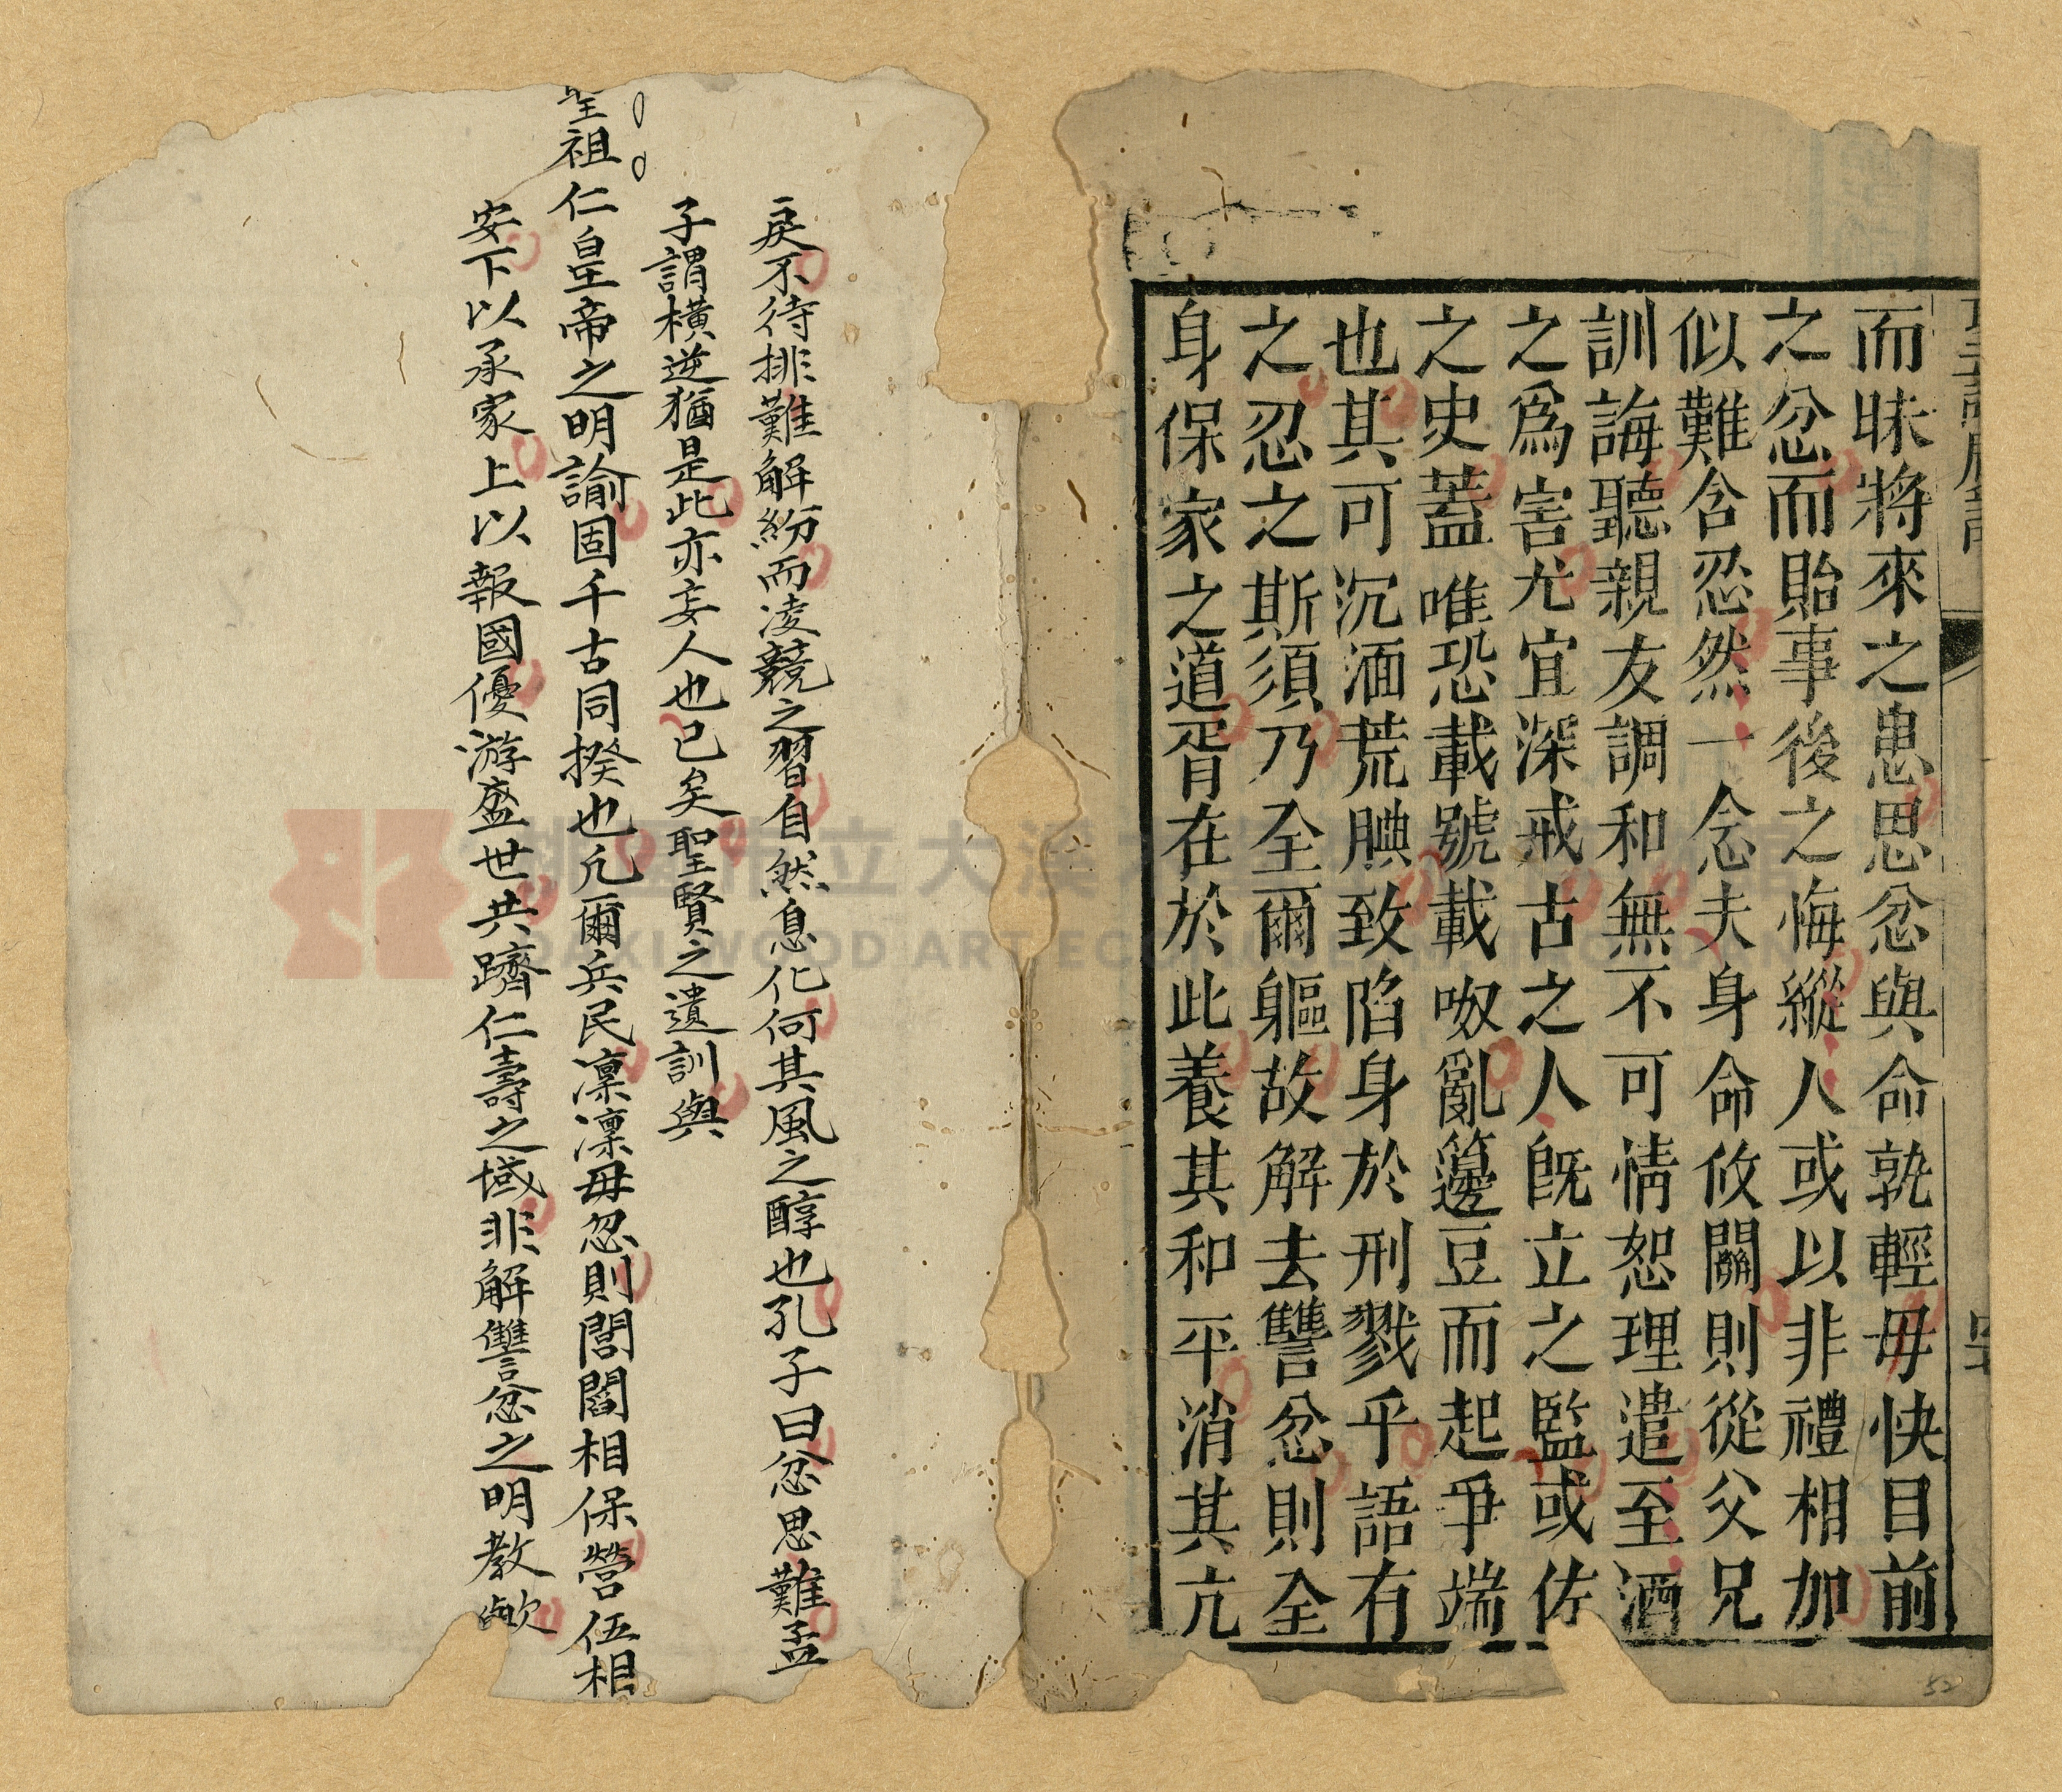 聖諭廣訓
而昧將來之患思忿與命孰輕毋快目前
之忿而貽事後之悔縱人或以非禮相加
似難含忍然一念夫身命攸關則從父兄
訓誨聽親友調和無不可情恕理遣至酒
之為害尤宜深戒古之人旣立之監或佐
之史蓋唯恐載號載呶亂籩豆而起爭端
也其可沉湎荒腆致陷身於刑戮乎語有
之忍之斯須乃全爾軀故解去讐忿則全
身保家之道胥在於此養其和平消其亢
戾不待排難解紛而凌競之習自然息化何其風之醇也孔子曰忿思難孟
子謂橫逆猶是此亦妄人也已矣聖賢之遺訓與
聖祖仁皇帝之明諭固千古同揆也凡爾兵民凜凜毋忽則閭閻相保營伍相
安下以承家上以報國優游盛世共躋仁壽之域非解讐忿之明教歟
DAXI WOOD ART ECOMUSEUM, TAOYUAN